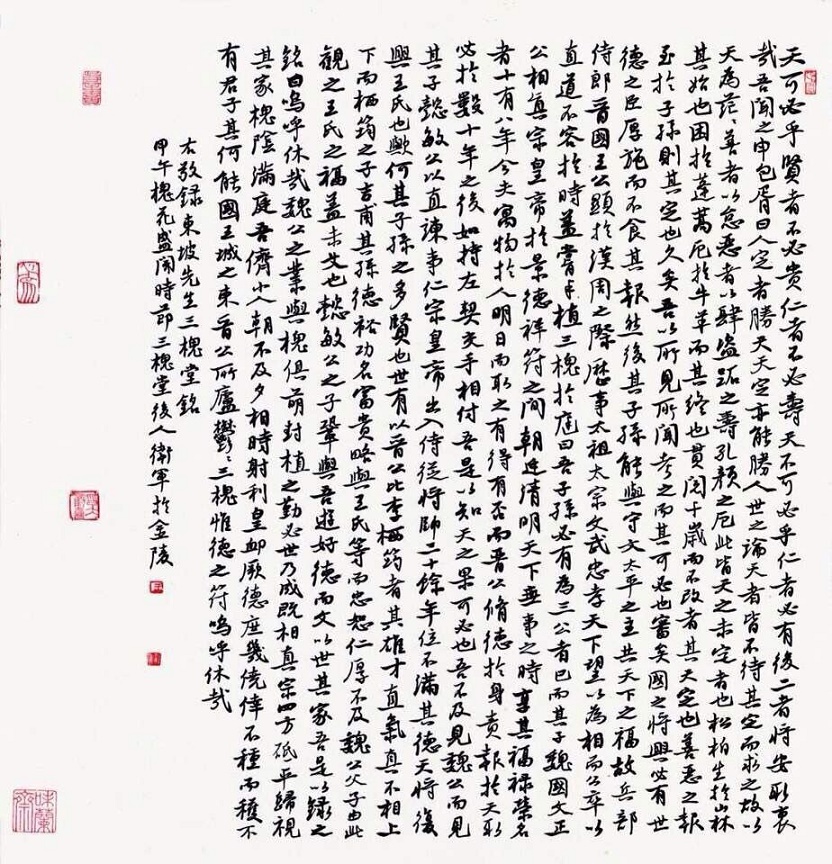 天可必乎賢者不必貴仁者不必壽天不可必乎仁者必有後二者將安取衷
哉吾聞之申包胥曰人定者勝天天定亦能勝人世之論天者皆不待其定而求之故以
天為茫〻善者以怠惡者以肆盜跖之壽孔顏之厄此皆天之未定者也松柏生於山林
其始也困於蓬蒿厄於牛羊而其終也貫閱千歲而不改者其天定也善惡之報
至於子孫則其定也久矣吾以所見所聞考之而其可必也審矣國之將興必有世
德之臣厚施而不食其報然後其子孫能與守文太平之主共天下之福故兵部
侍郎晉國王公顯於漢周之際歷事太祖太宗文武忠孝天下望以為相而公卒以
直道不容於時蓋嘗手植三槐於庭曰吾子孫必有為三公者已而其子魏國文正
公相真宗皇帝於景德祥符之間朝廷清明天下無事之時享其福祿榮名
者十有八年今夫寓物於人明日而取之有得有否而晉公脩德於身責報於天取
必於數十年之後如持左契交手相付吾是以知天之果可必也吾不及見魏公而見
其子懿敏公以直諫事仁宗皇帝出入侍從將帥二十餘年位不滿其德天將復
興王氏也歟何其子孫之多賢也世有以晉公比李栖筠者其雄才直氣真不相上
下而栖筠之子吉甫其孫德裕功名富貴略與王氏等而忠恕仁厚不及魏公父子由此
觀之王氏之福蓋未艾也懿敏公之子鞏與吾遊好德而文以世其家吾是以錄之
銘曰嗚呼休哉魏公之業與槐俱萌封植之勤必世乃成既相真宗四方砥平歸視
其家槐陰滿庭吾儕小人朝不及夕相時射利皇卹厥德庶幾僥倖不種而穫不
有君子其何能國王城之東晉公所廬鬱〻三槐惟德之符嗚呼休哉
右敬錄東坡先生三槐堂銘
甲午槐花盛開時節三槐堂後人衛軍於金陵
味蘭齋